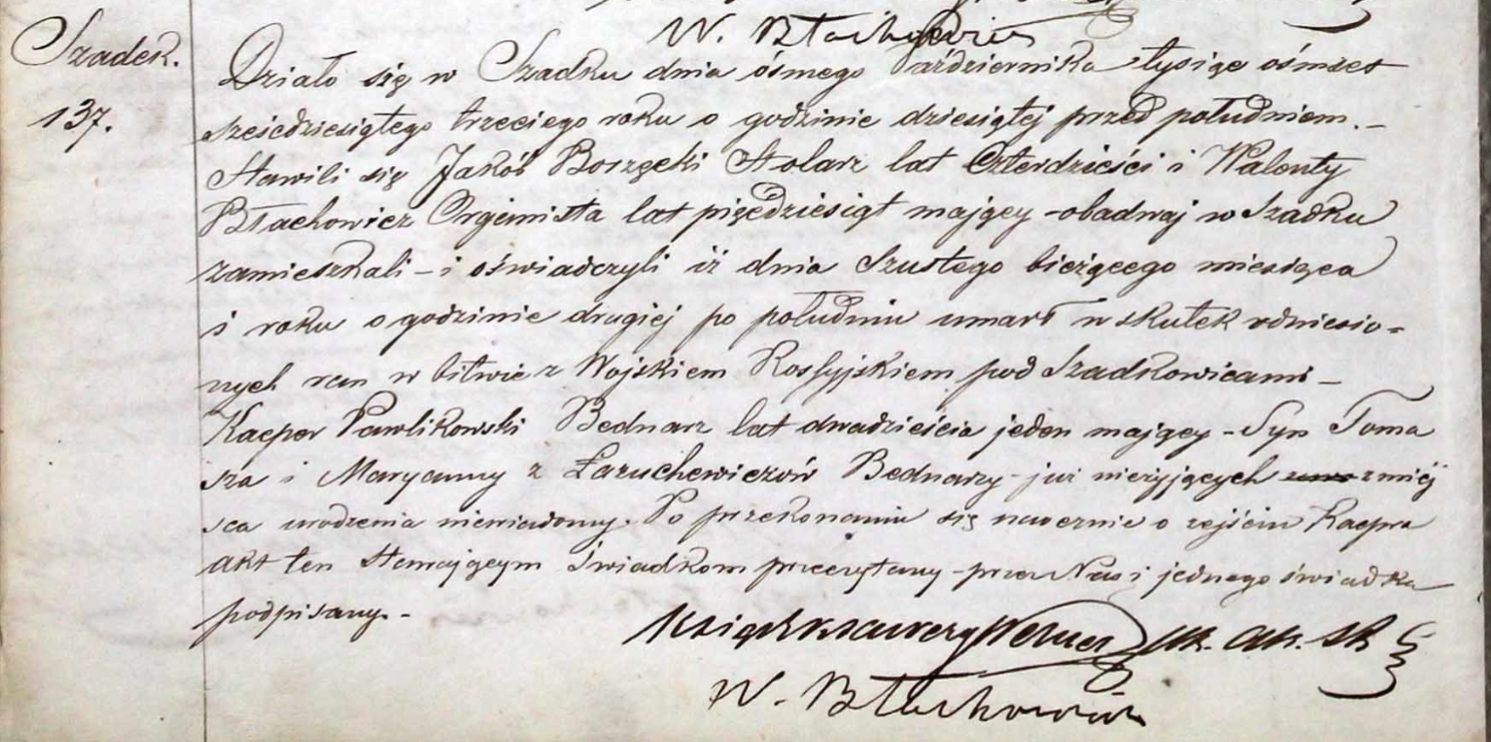 W. Błachowicz
Szadek.
137.
Działo się w Szadku dnia ósmego Października tysiąc ośmset
sześćdziesiątego trzeciego roku o godzinie dziesiątej przed południem. –
Stawili się Jakób Boszęcki Stolarz lat Czterdzieści i Walenty
Błachowicz Organista lat pięćdziesiąt mający – obadwaj w Szadku
zamieszkali – i oświadczyli iż dnia Szustego bieżącego miesiąca
i roku o godzinie drugiej po południu umarł w skutek odniesio=
nych ran w bitwie z Wojskiem Rossyjskiem pod Szadkowicami –
Kacper Pawlikowski Bednarz lat dwadzieścia jeden mający – Syn Toma
sza i Maryanny z Łazuchewiczów Bednarzy – już nieżyjących z miej
sca urodzenia niewiadomy. Po przekonaniu się naocznie o zejściu Kacpra
akt ten Stawającym Świadkom przeczytany – przez Nas i jednego świadka
podpisany. –
Ksiądz Ksawery
W. Błachowicz